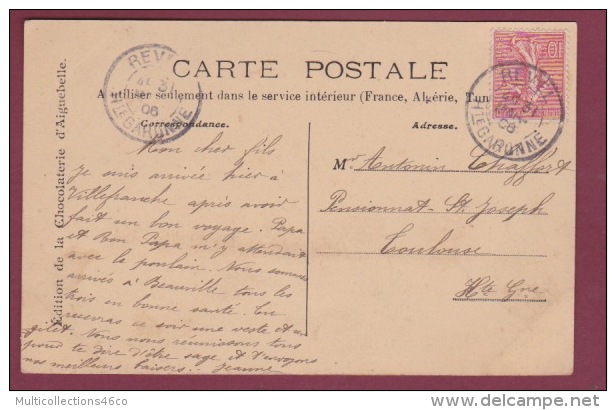 CARTE POSTALE
A utiliser seulement dans le service intérieur (France, Algérie, Tun
Correspondance.
Adresse.
Edition de la Chocolaterie d'Aiguebelle.
REVEL
06
HTE GARONNE
REVEL
31
06
HTE GARONNE
10
Mon cher fils
Je suis arrivée hier à
Villefranche après avoir
fait un bon voyage. Papa
et Bon Papa m'y attendait
avec le poulain. Nous sommes
arrivés à Beauville tous les
trois en bonne santé. Tu
recevras ce soir une veste et un
gilet. Nous nous reunissons tous
pour te dire d'être sage et t'envoyons
nos meilleurs baisers. Jeanne
Mr Antonin Chaffort
Pensionnat St. Joseph
Toulouse
Hte Gne
Multicollections46co
www.delcampe.net